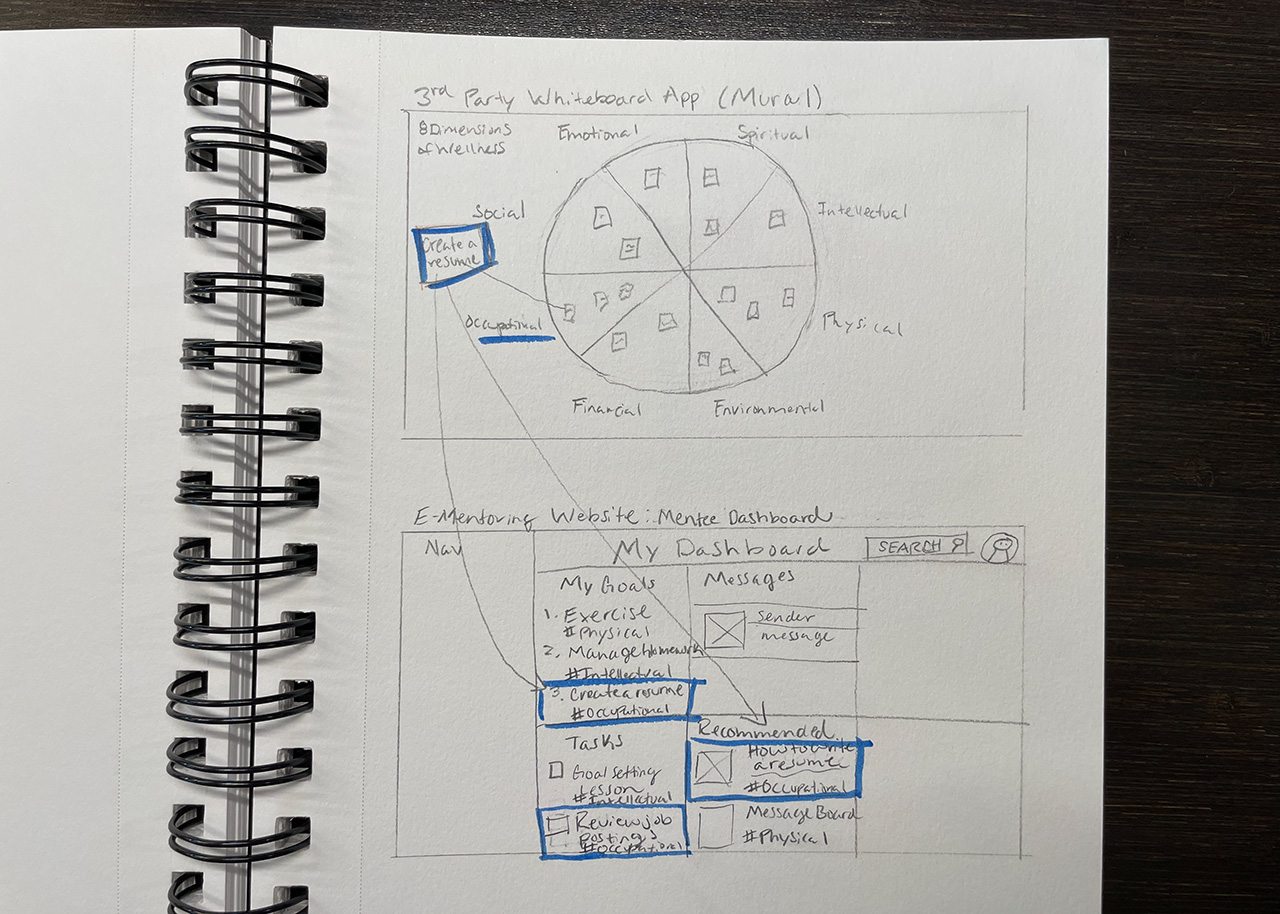 3rd Party Whiteboard App (Mural)
8 Dimensions
of Wellness
Emotional
Spiritual
Social
Intellectual
Create a
resume
Occupational
Physical
Financial
Environmental
E-Mentoring Website: Mentee Dashboard
Nav
My Dashboard
SEARCH
My Goals
1. Exercise
#Physical
2. Manage Homework
#Intellectual
3. Create a resume
#Occupational
Messages
Sender
message
Tasks
Goal setting
Lesson
#Intellectual
Review job
postings
#Occupational
Recommended
How to write
a resume
#Occupational
Message Board
#Physical